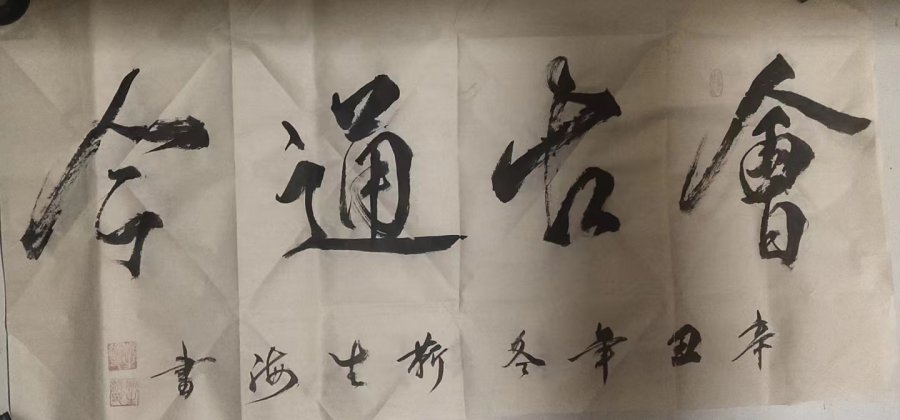 會古通今
辛丑年冬靳生海書